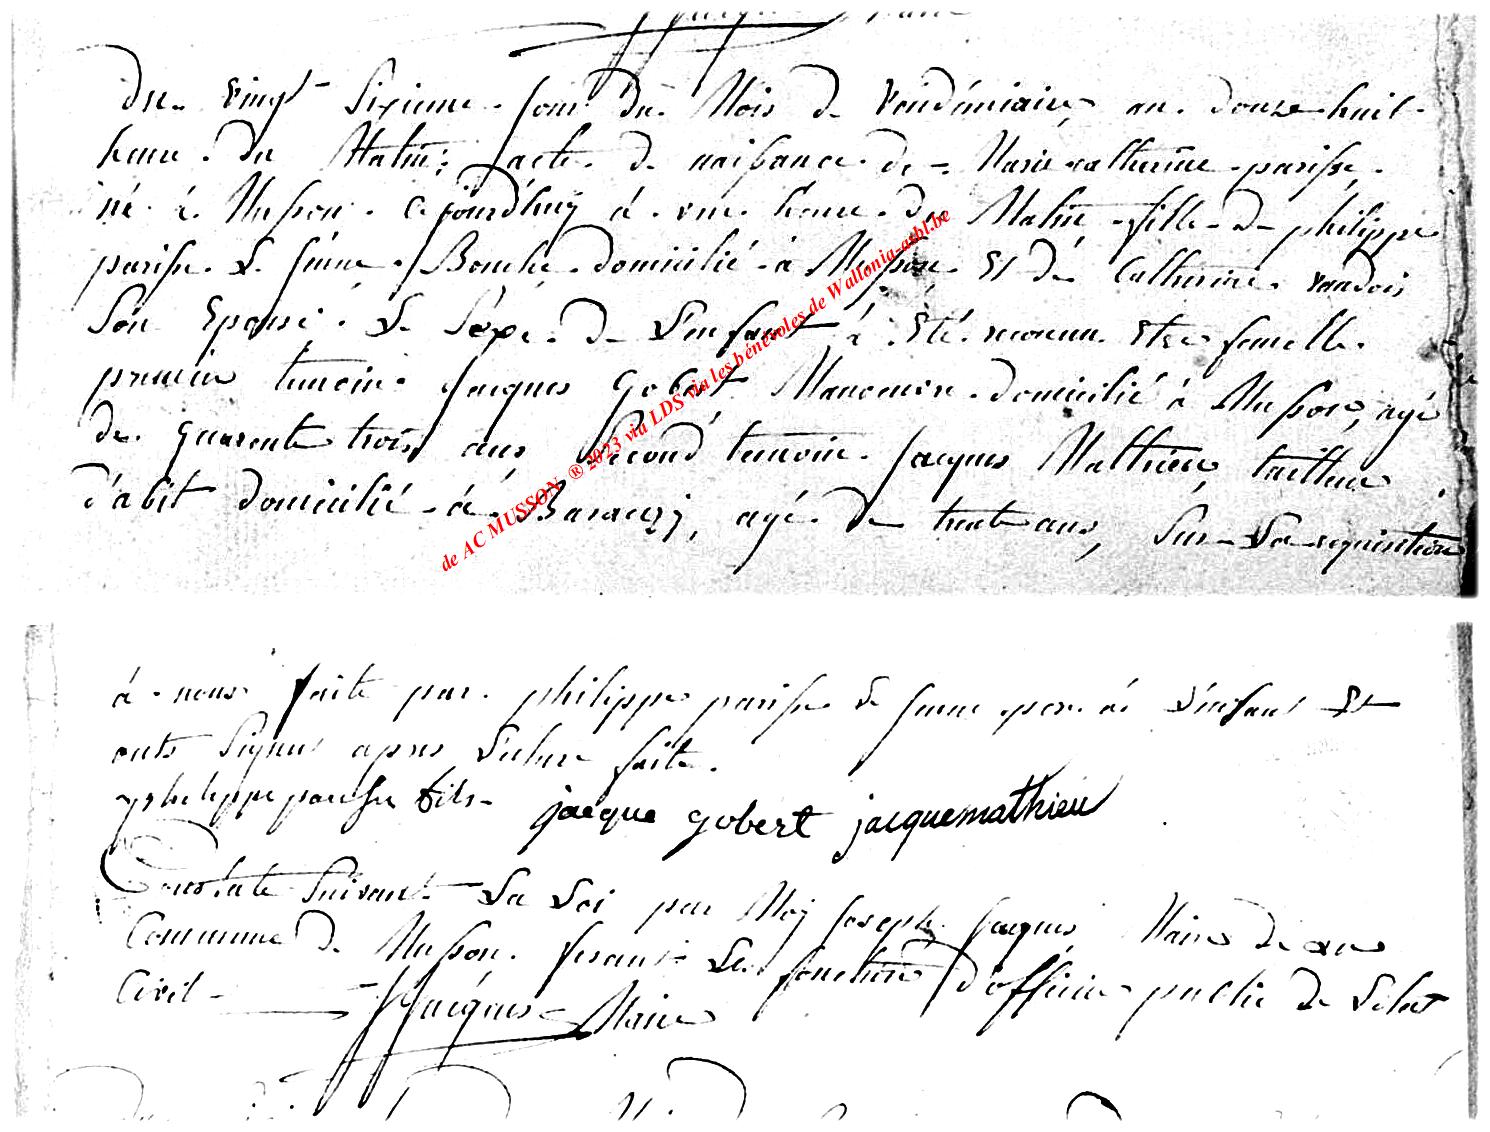 du vingt Sixieme jour du Mois de Vendémiaire, an douze huit
heure du Matin; Jacte de naissance de Marie catherine parisse
né à Musson Cejourdhuy à une heure du Matin fille de philippe
parisse Le jeune Bouché domicilié à Musson Et de Catherine vaudois
Son Epouse. Le Sexe de L'enfant à Eté reconnu Etre femelle
premier temoin Jacques Gobert Manoeuvre domicilié à Musson, agé
de quarente trois ans Second temoin Jacques Mathieu, tailleur
d'abit domicilié à Baranzy, agé de trente ans, Sur La requisition
de AC MUSSON ® 2023 via LDS via les bénévoles de Wallonia-asbl.be
à nous faite par philippe parisse Le jeune pere de L'enfant Et
onts Signer apres Lecture faite.
philippe parisse fils jacque gobert jacquemathieu
Constate Suivant La Loi par Moy joseph Jacques Maire de
Commune de Musson fesant Les fonction D'officier public de Letat
Civil
JJacques Maire